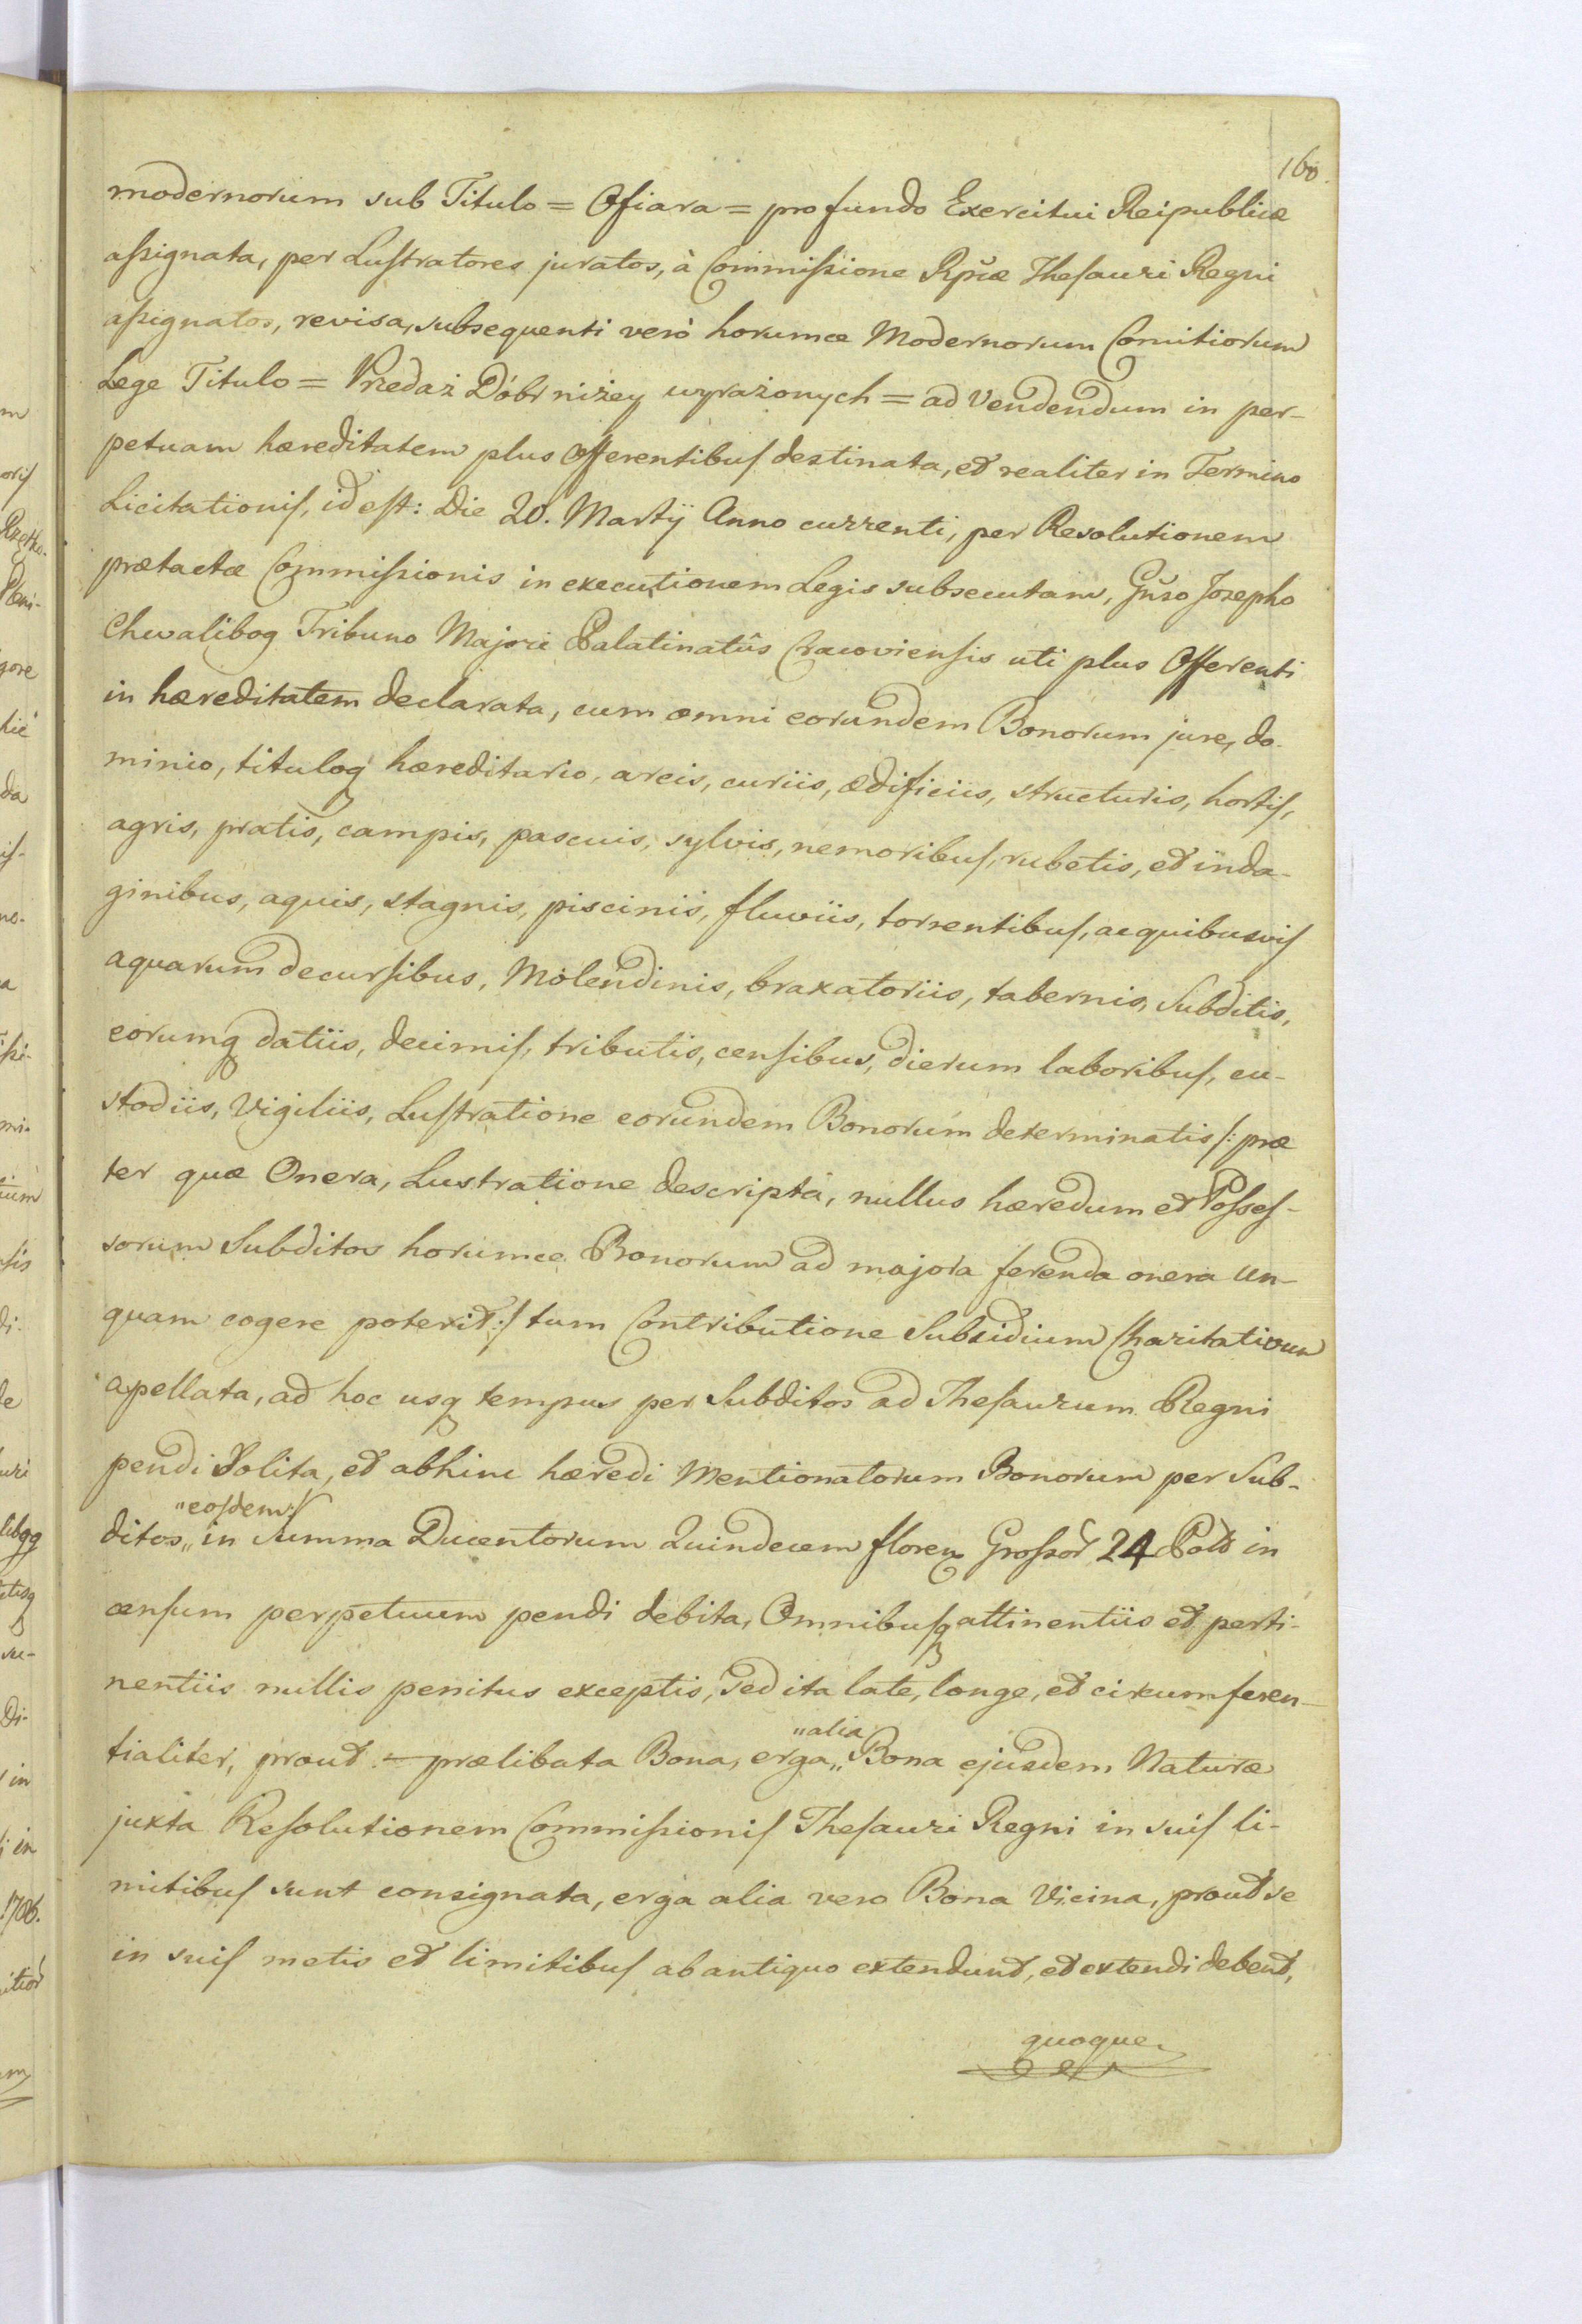 160.
modernorum sub Titulo = Ofiara = pro fundo Exercitui Reipublicæ
assignata, per Lustratores juratos, à Commissione Rpũæ Thesauri Regni
assignatos, revisa, subsequenti verò horumce Modernorum Comitiorum
Lege Titulo = Przedaż Dóbr niżey wyrażonych = ad Vendendum in per-
petuam hæreditatem plus Offerentibus destinata, et realiter in Termino
Licitationis, id est: Die 20. Martÿ Anno currenti, per Resolutionem
prætactæ Commissionis in executionem Legis subsecutam, Gñso Josepho
Chwalibog Tribuno Majori Palatinatûs Cracoviensis uti plus Offerenti
in hæreditatem declarata, cum omni eorundem Bonorum jure, do-
minio, tituloq hæreditario, arcis, curiis, ædificiis, structuris, hortis,
agris, pratis, campis, pascuis, sylvis, nemoribus, rubetis, et inda-
ginibus, aquis, stagnis, piscinis, fluviis, torrentibus, ac quibusvis
aquarum decursibus, Molendinis, braxatoriis, tabernis, Subditis,
eorumq datiis, decimis, tributis, censibus, dierum laboribus, cu-
stodiis, Vigiliis, Lustratione eorundem Bonorum determinatis /: præ
ter quæ Onera, Lustratione descripta, nullus hæredum et Posses-
sorum Subditos horumce Bonorum ad majora ferenda onera un-
quam cogere poterit :/ tum Contributione Subsidium Charitativum
apellata, ad hoc usq tempus per Subditos ad Thesaurum Regni
pendi Solita, et abhinc hæredi Mentionatorum Bonorum per Sub-
"eosdem :/
ditos,, in Summa Ducentorum Quindecem floren Grossor 24 Pold in
censum perpetuum pendi debita, Omnibusq attinentiis et perti-
nentiis nullis penitus exceptis, sed ita late, longe, et circumferen-
"alia
tialiter, prout = prælibata Bona, erga,, Bona ejusdem Naturæ
juxta Resolutionem Commissionis Thesauri Regni in suis li-
mitibus sunt consignata, erga alia vero Bona Vicina, prout se
in suis metis et limitibus ab antiquo extendunt, et extendi debent,
quoque